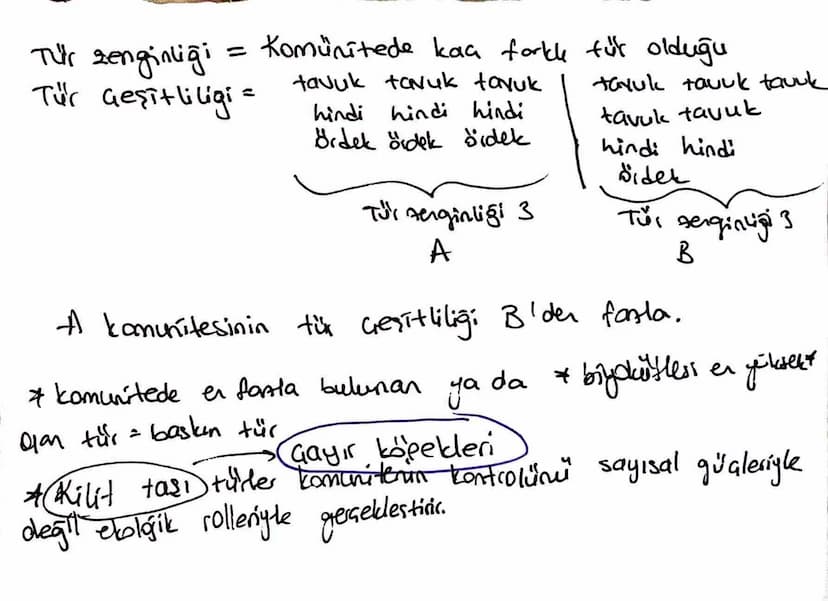 Tür zenginliği = Komünitede kaç farklı tür olduğu
Tür Çeşitliliği =
tavuk tavuk tavuk
hindi hindi hindi
ördek ördek ördek
Tür zenginliği 3
A
tavuk tavuk tavuk
tavuk tavuk
hindi hindi
ördek
Tür zenginliği 3
B
A komunitesinin tür çeşitliliği B'den fazla.
* komunitede en fazla bulunan ya da * biyokütlesi en yüksek*
olan tür = baskın tür
Çayır köpekleri
* Kilit taşı türler komunitenin kontrolünü sayısal güçleriyle
değil ekolojik rolleriyle gerçekleştirir.